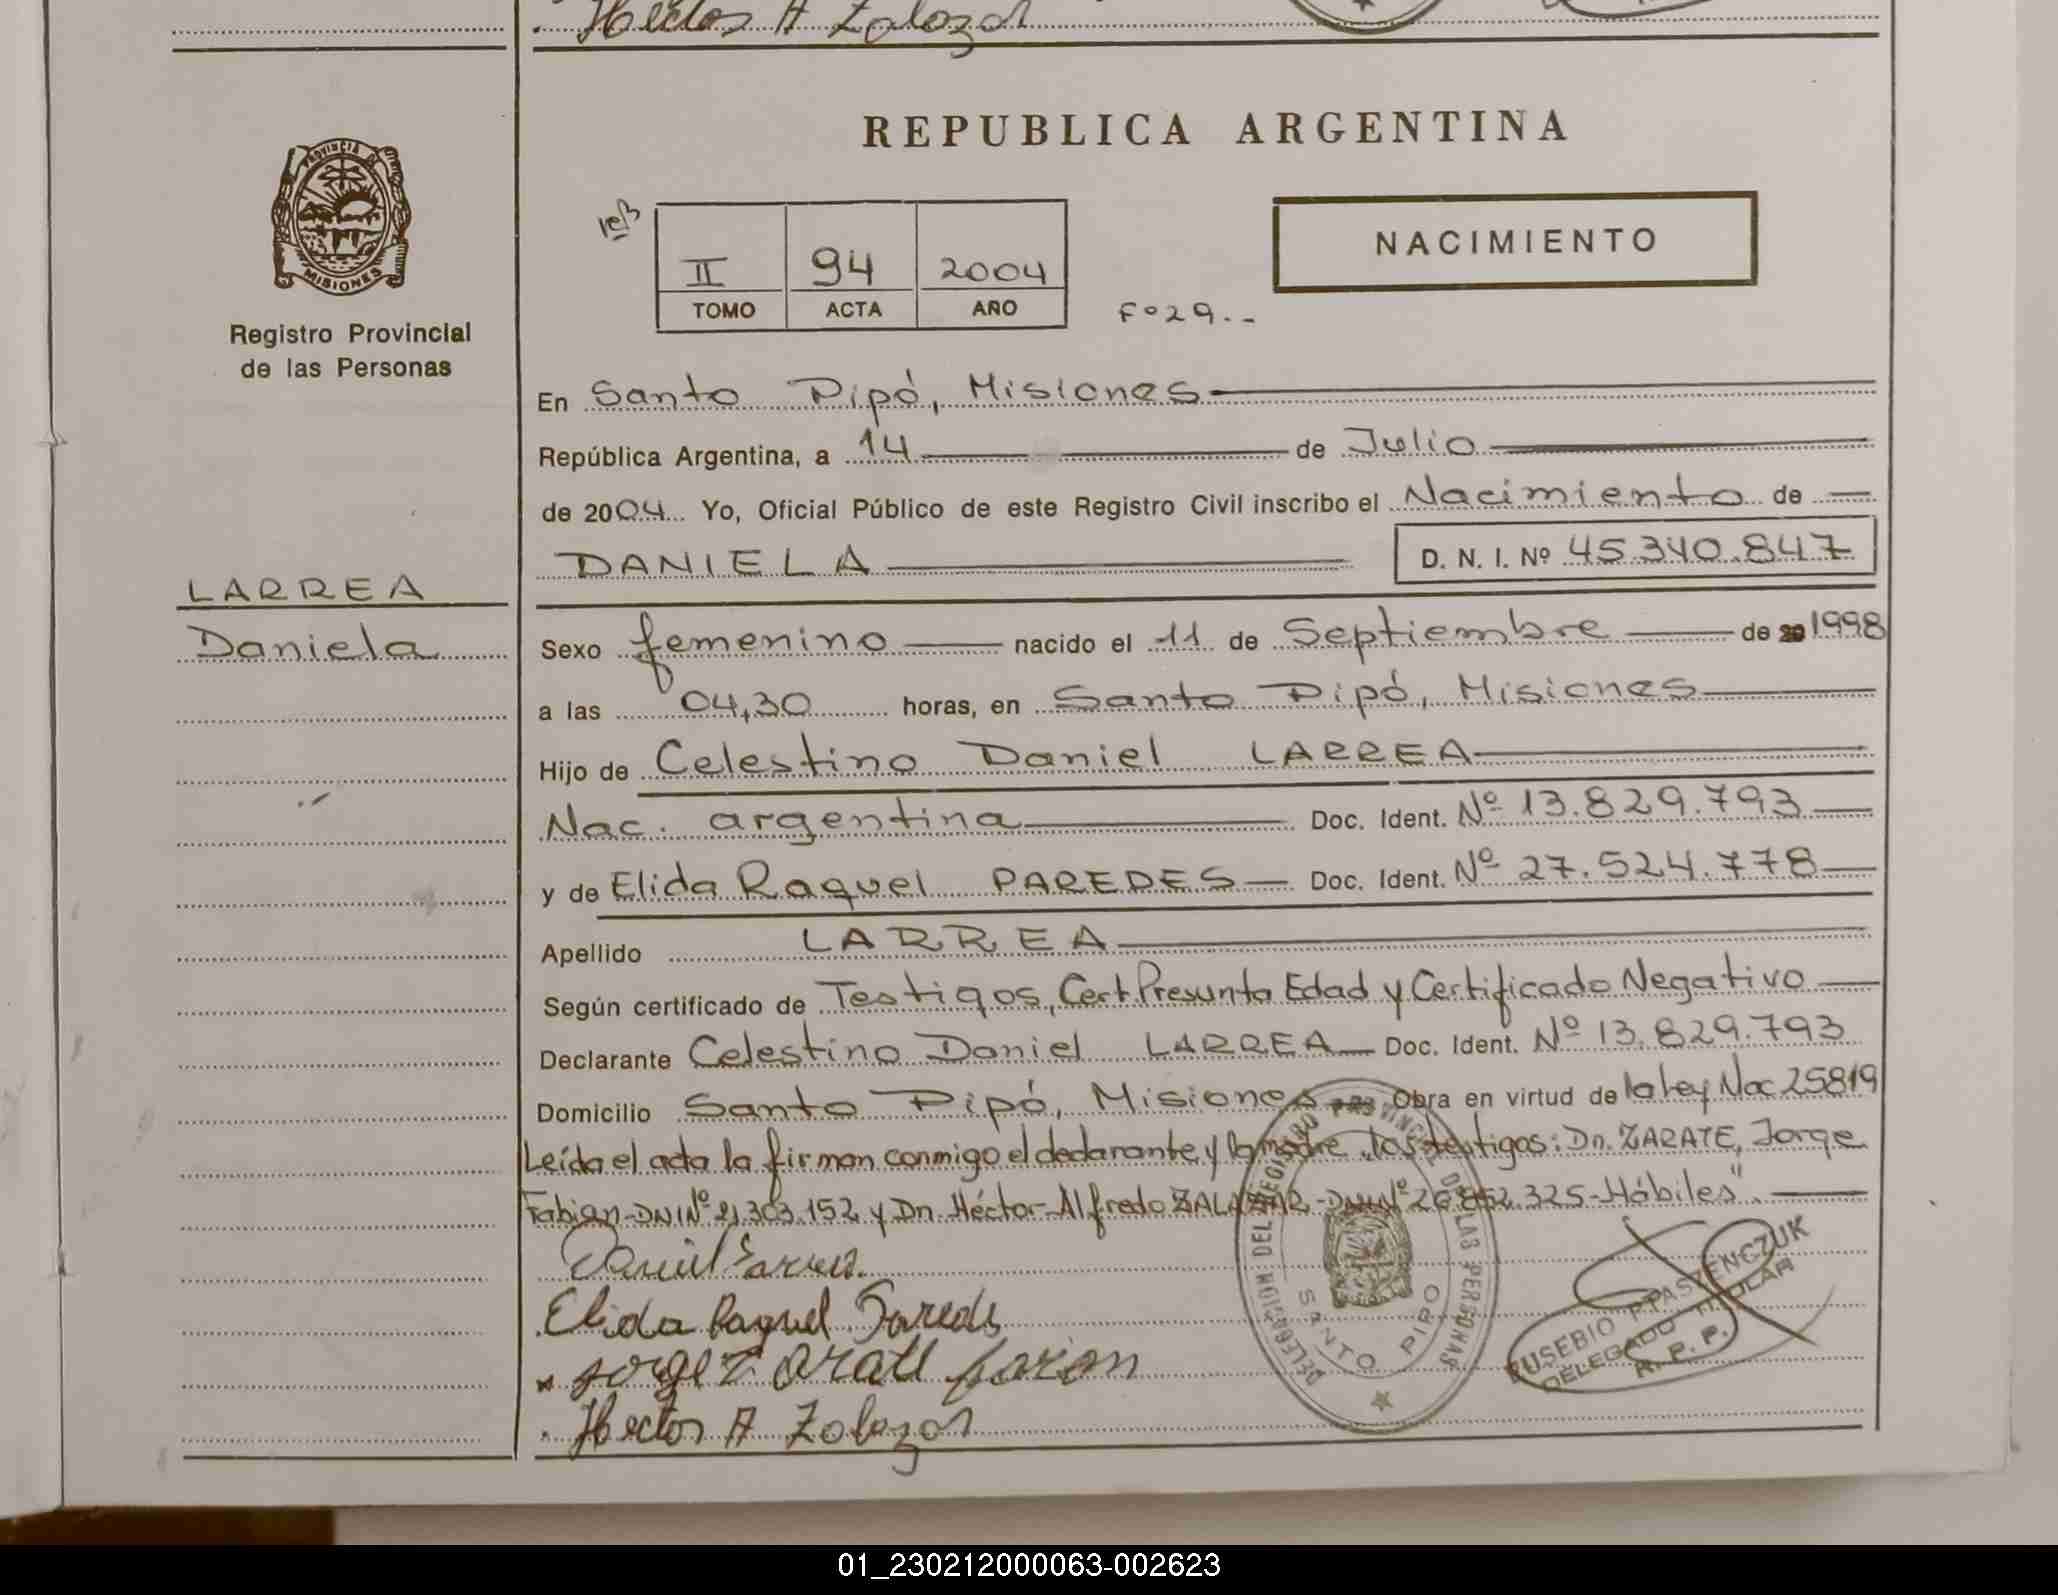 Hector A Zalazar
PROVINCIA DE
MISIONES
Registro Provincial
de las Personas
REPUBLICA ARGENTINA
II 94 2004
TOMO ACTA AÑO
Fº 29.-
NACIMIENTO
En Santo Pipó, Misiones
República Argentina, a 14 de Julio
de 2004 Yo, Oficial Público de este Registro Civil inscribo el Nacimiento de
DANIELA D. N. I. Nº 45.340.847
LARREA
Daniela
Sexo femenino nacido el 11 de Septiembre de 20 1998
a las 04,30 horas, en Santo Pipó, Misiones
Hijo de Celestino Daniel LARREA
Nac. argentina Doc. Ident. Nº 13.829.793
y de Elida Raquel PAREDES Doc. Ident. Nº 27.524.778
Apellido LARREA
Según certificado de Testigos, Cert. Presunta Edad y Certificado Negativo
Declarante Celestino Daniel LARREA Doc. Ident. Nº 13.829.793
Domicilio Santo Pipó, Misiones Obra en virtud de la ley Nac 25819
Leída el acta la firman conmigo el declarante y la madre los testigos: Dn. ZARATE, Jorge
Fabian-DNI Nº 21.303.152 y Dn. Héctor Alfredo ZALAZAR-DNI Nº 26.852.325-Hábiles"
Elida Raquel Paredes
Jorge Zarate Fabian
Hector A Zalazar
DELEGACION DEL REGISTRO PROVINCIAL DE LAS PERSONAS
SANTO PIPO
EUSEBIO P. PASZENCZUK
DELEGADO TITULAR
R. P. P.
01_230212000063-002623